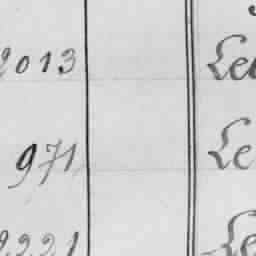 2013 Le
971 Le
2221 Le